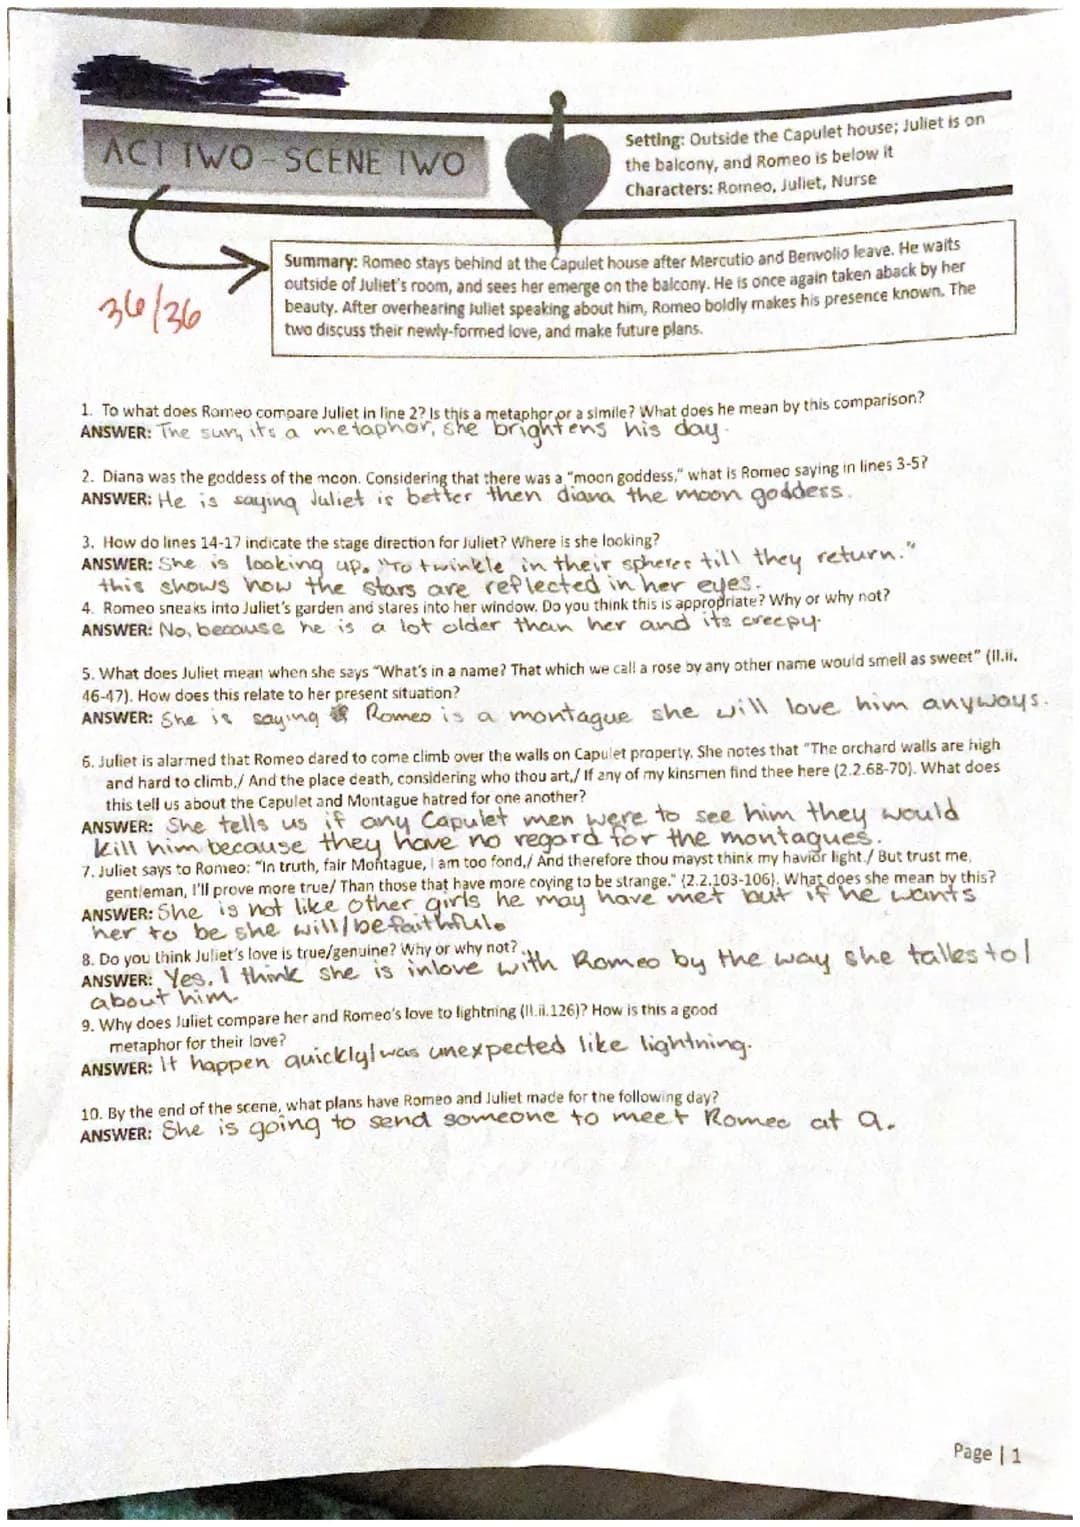 ACT TWO - SCENE TWO
Setting: Outside the Capulet house; Juliet is on
the balcony, and Romeo is below it
Characters: Romeo, Juliet, Nurse
Summary: Romeo stays behind at the Capulet house after Mercutio and Benvolio leave. He waits
outside of Juliet's room, and sees her emerge on the balcony. He is once again taken aback by her
beauty. After overhearing Juliet speaking about him, Romeo boldly makes his presence known. The
two discuss their newly-formed love, and make future plans.
36/36
1. To what does Romeo compare Juliet in line 2? Is this a metaphor or a simile? What does he mean by this comparison?
ANSWER: The sun, its a metaphor, she brightens his day.
2. Diana was the goddess of the moon. Considering that there was a "moon goddess," what is Romeo saying in lines 3-5?
ANSWER: He is saying Juliet is better then diana the moon goddess.
3. How do lines 14-17 indicate the stage direction for Juliet? Where is she looking?
ANSWER: She is looking up. "To twinkle in their spheres till they return."
this shows how the stars are reflected in her eyes.
4. Romeo sneaks into Juliet's garden and stares into her window. Do you think this is appropriate? Why or why not?
ANSWER: No, because he is a lot older than her and its creepy.
5. What does Juliet mean when she says "What's in a name? That which we call a rose by any other name would smell as sweet" (II.ii.
46-47). How does this relate to her present situation?
ANSWER: She is saying Romeo is a montague she will love him anyways.
6. Juliet is alarmed that Romeo dared to come climb over the walls on Capulet property. She notes that "The orchard walls are high
and hard to climb,/ And the place death, considering who thou art,/ If any of my kinsmen find thee here (2.2.68-70). What does
this tell us about the Capulet and Montague hatred for one another?
ANSWER: She tells us if any Capulet men were to see him they would
kill him because they have no regard for the montagues.
7. Juliet says to Romeo: "In truth, fair Montague, I am too fond,/ And therefore thou mayst think my havior light./ But trust me,
gentleman, I'll prove more true/ Than those that have more coying to be strange." (2.2.103-106). What does she mean by this?
ANSWER: She is not like other girls he may have met but if he wants
her to be she will/be faithful.
8. Do you think Juliet's love is true/genuine? Why or why not?
ANSWER: Yes, I think she is inlove with Romeo by the way she talks to/
about him.
9. Why does Juliet compare her and Romeo's love to lightning (II.ii.126)? How is this a good
metaphor for their love?
ANSWER: It happen quickly/was unexpected like lightning.
10. By the end of the scene, what plans have Romeo and Juliet made for the following day?
ANSWER: She is going to send someone to meet Romeo at 9.
Page | 1